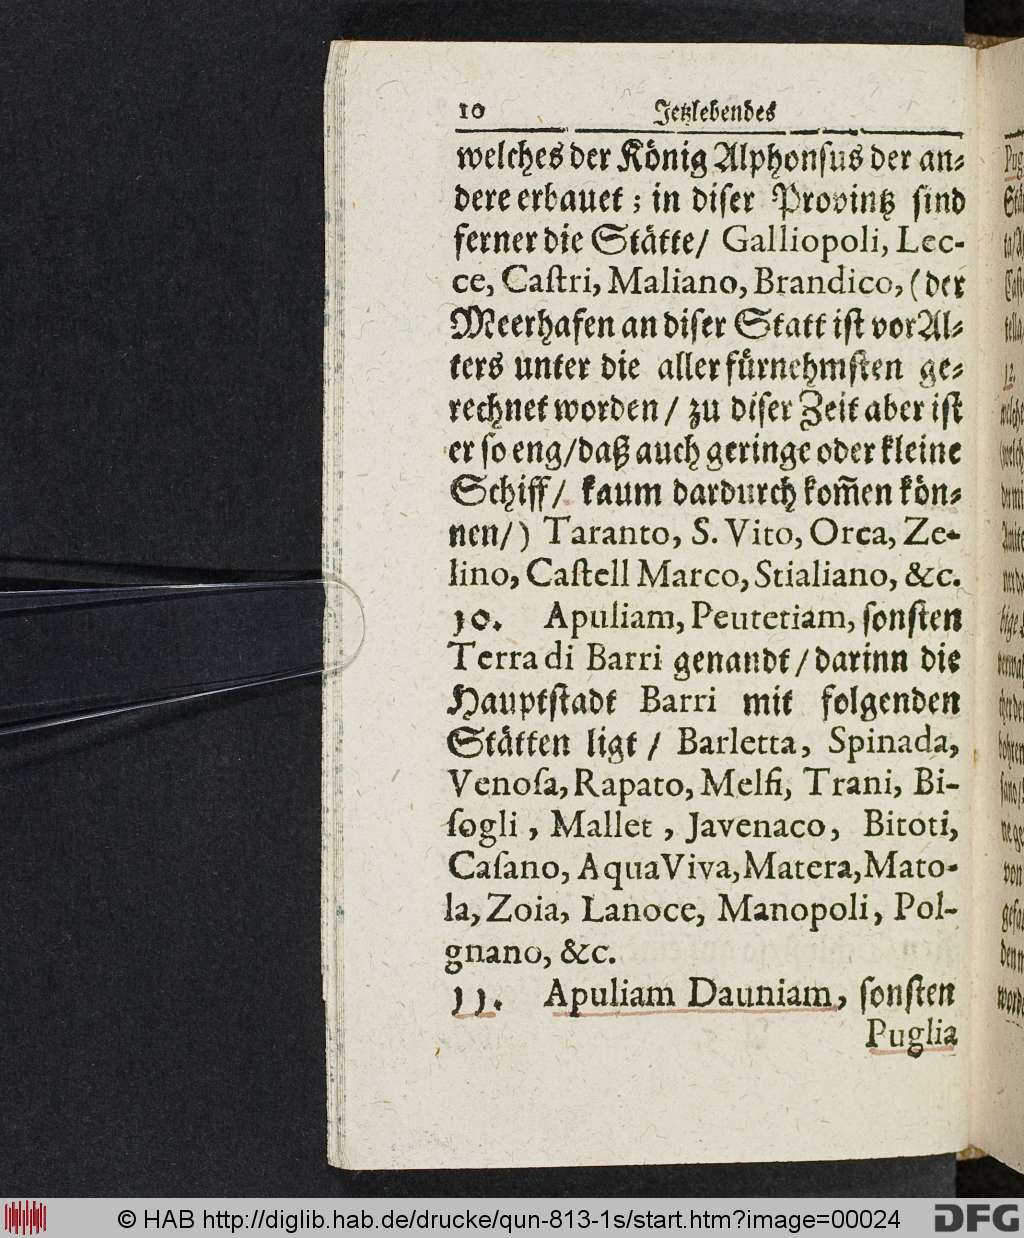 10 Jetzlebendes
welches der König Alphonsus der an⸗
dere erbauet ; in diser Provintz sind
ferner die Stätte/ Galliopoli, Lec-
ce, Caſtri, Maliano, Brandico, (der
Meerhafen an diser Statt iſt vor Al⸗
ters unter die aller fürnehmſten ge⸗
rechnet worden / zu diser Zeit aber iſt
er ſo eng/daß auch geringe oder kleine
Schiff/ kaum dardurch kom̃en kön⸗
nen/) Taranto, S. Vito, Orca, Ze-
lino, Caſtell Marco, Stialiano, &c.
10. Apuliam, Peutetiam, ſonſten
Terra di Barri genandt/darinn die
Hauptſtadt Barri mit folgenden
Stätten ligt / Barletta, Spinada,
Venoſa, Rapato, Melfi, Trani, Bi-
ſogli , Mallet , Javenaco, Bitoti,
Caſano, Aqua Viva, Matera, Mato-
la, Zoia, Lanoce, Manopoli, Pol-
gnano, &c.
11. Apuliam Dauniam, ſonſten
Puglia
© HAB http://diglib.hab.de/drucke/qun-813-1s/start.htm?image=00024
DFG